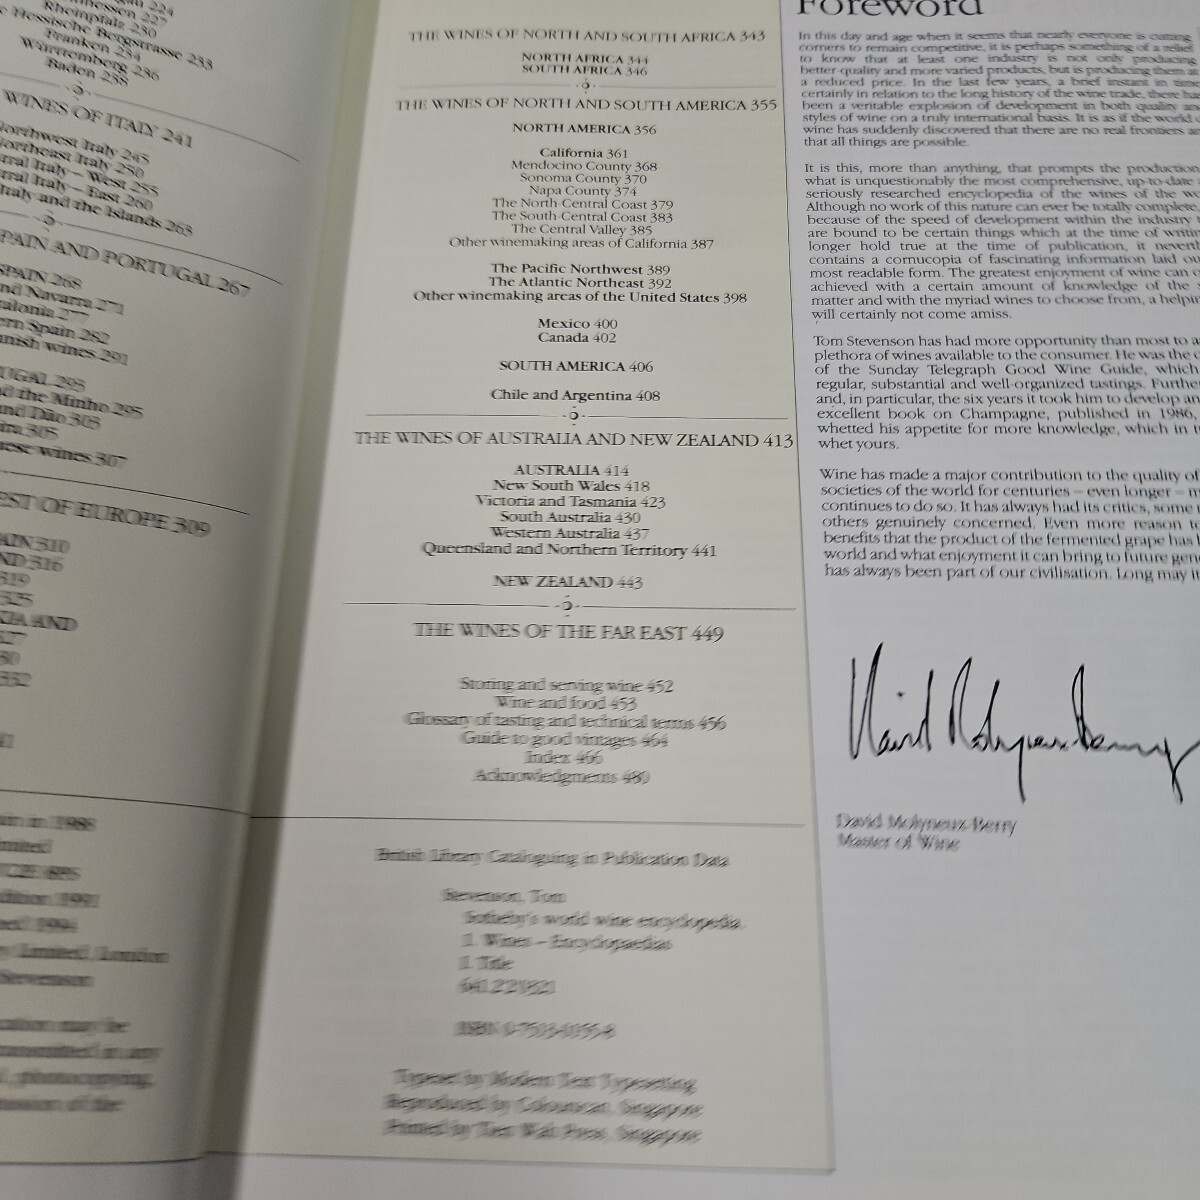 Rheinpfalz 230
Hessische Bergstrasse 233
Franken 234
Württemberg 236
Baden 238
WINES OF ITALY 241
Northwest Italy 245
Northeast Italy 250
Italy – West 255
Italy – East 260
Italy and the Islands 263
PAIN AND PORTUGAL 267
SPAIN 268
Navarra 271
277
Spain 282
wines 291
295
the Minho 295
and Dão 303
305
wines 307
EST OF EUROPE 309
310
316
319
325
AND
327
332
in 1988
1991
1994
Limited, London
Stevenson
may be
in any
photocopying,
of the
THE WINES OF NORTH AND SOUTH AFRICA 343
NORTH AFRICA 344
SOUTH AFRICA 346
THE WINES OF NORTH AND SOUTH AMERICA 355
NORTH AMERICA 356
California 361
Mendocino County 368
Sonoma County 370
Napa County 374
The North-Central Coast 379
The South-Central Coast 383
The Central Valley 385
Other winemaking areas of California 387
The Pacific Northwest 389
The Atlantic Northeast 392
Other winemaking areas of the United States 398
Mexico 400
Canada 402
SOUTH AMERICA 406
Chile and Argentina 408
THE WINES OF AUSTRALIA AND NEW ZEALAND 413
AUSTRALIA 414
New South Wales 418
Victoria and Tasmania 423
South Australia 430
Western Australia 437
Queensland and Northern Territory 441
NEW ZEALAND 443
THE WINES OF THE FAR EAST 449
Storing and serving wine 452
Wine and food 453
Glossary of tasting and technical terms 456
Guide to good vintages 464
Index 466
Acknowledgments 480
British Library Cataloguing in Publication Data
Stevenson, Tom
Sotheby's world wine encyclopedia.
1. Wines – Encyclopaedias
I. Title
641.221321
ISBN 0-7513-0155-8
Typeset by Modern Text Typesetting,
Reproduced by Colourscan, Singapore,
Printed by Tien Wah Press, Singapore,
Foreword
In this day and age when it seems that nearly everyone is cutting
corners to remain competitive, it is perhaps something of a relief
to know that at least one industry is not only producing
better-quality and more varied products, but is producing them at
a reduced price. In the last few years, a brief instant in time
certainly in relation to the long history of the wine trade, there has
been a veritable explosion of development in both quality and
styles of wine on a truly international basis. It is as if the world of
wine has suddenly discovered that there are no real frontiers and
that all things are possible.
It is this, more than anything, that prompts the production
what is unquestionably the most comprehensive, up-to-date
seriously researched encyclopedia of the wines of the
Although no work of this nature can ever be totally complete,
because of the speed of development within the industry
are bound to be certain things which at the time of
longer hold true at the time of publication, it
contains a cornucopia of fascinating information laid
most readable form. The greatest enjoyment of wine can
achieved with a certain amount of knowledge of the
matter and with the myriad wines to choose from, a
will certainly not come amiss.
Tom Stevenson has had more opportunity than most to
plethora of wines available to the consumer. He was the
of the Sunday Telegraph Good Wine Guide, which
regular, substantial and well-organized tastings.
and, in particular, the six years it took him to develop
excellent book on Champagne, published in 1986,
whetted his appetite for more knowledge, which in
whet yours.
Wine has made a major contribution to the quality of
societies of the world for centuries – even longer –
continues to do so. It has always had its critics, some
others genuinely concerned. Even more reason
benefits that the product of the fermented grape has
world and what enjoyment it can bring to future
has always been part of our civilisation. Long may it
David Molyneux-Berry
David Molyneux-Berry
Master of Wine